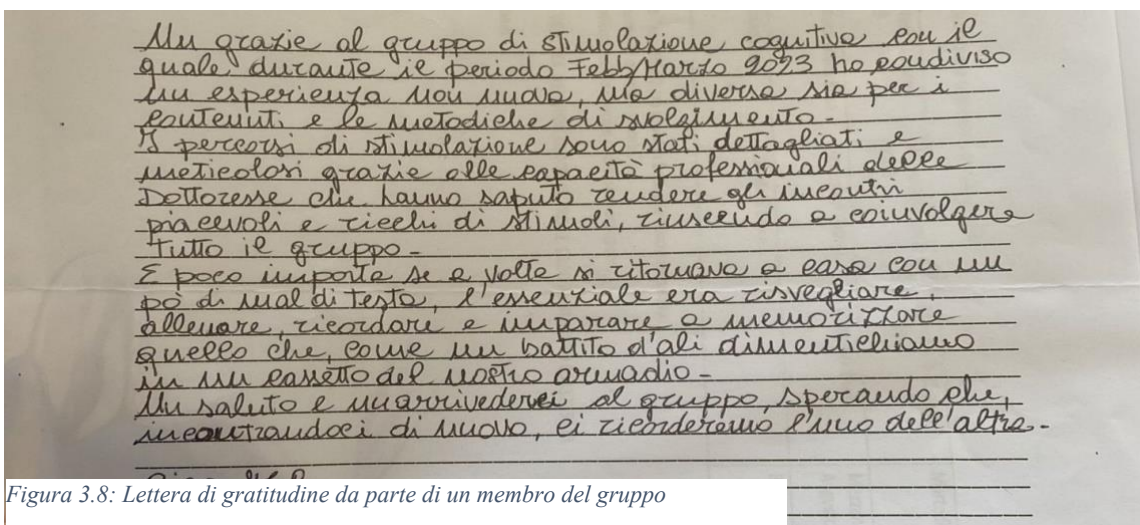 Un grazie al gruppo di stimolazione cognitiva con il
quale durante il periodo Febb/Marzo 2023 ho condiviso
un esperienza non nuova, ma diversa sia per i
contenuti e le metodiche di svolgimento.
I percorsi di stimolazione sono stati dettagliati e
meticolosi grazie alle capacità professionali delle
Dottoresse che hanno saputo rendere gli incontri
piacevoli e ricchi di stimoli, riuscendo a coinvolgere
tutto il gruppo.
E poco importa se a volte si ritornava a casa con un
pò di mal di testa, l'essenziale era risvegliare,
allenare, ricordare e imparare a memorizzare
quello che, come un battito d'ali dimentichiamo
in un cassetto del nostro armadio.
Un saluto e un arrivederci al gruppo, sperando che,
incontrandoci di nuovo, ci ricorderemo l'uno dell'altro.
Figura 3.8: Lettera di gratitudine da parte di un membro del gruppo